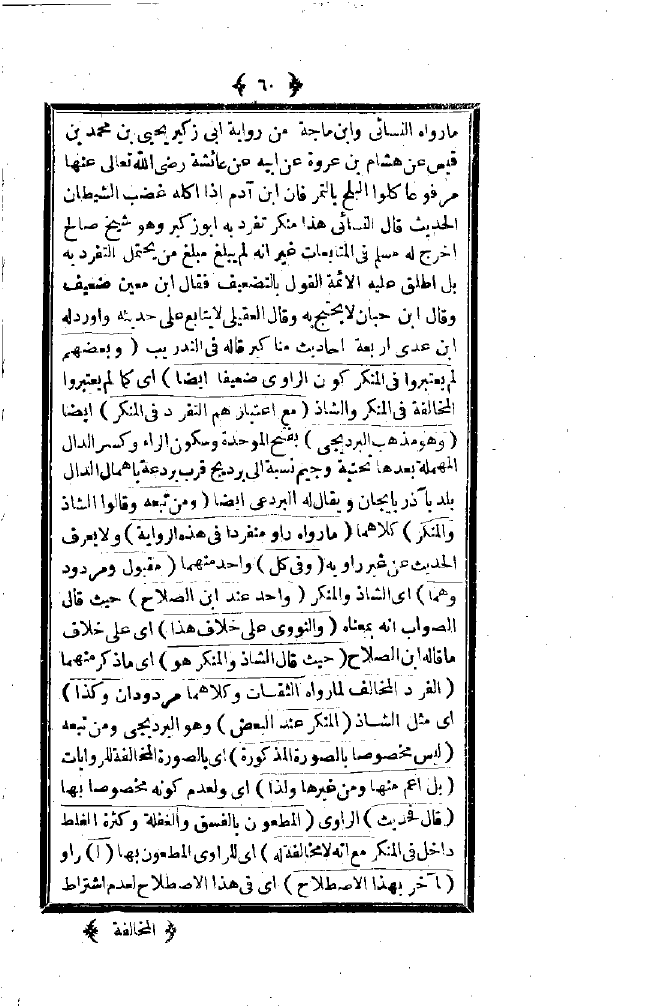 ﴿ ٦٠ ﴾
مارواه النسائى وابن ماجة من رواية ابى زكير يحيى بن محمد بن
قيس عن هشام بن عروة عن ابيه عن عائشة رضى الله تعالى عنها
مرفوعا كلوا البلح بالتمر فان ابن آدم اذا اكله غضب الشيطان
الحديث قال النسائى هذا منكر تفرد به ابوزكير وهو شيخ صالح
اخرج له مسلم فى المتابعات غير انه لم يبلغ مبلغ من يحتمل التفرد به
بل اطلق عليه الائمة القول بالتضعيف فقال ابن معين ضعيف
وقال ابن حبان لايحتج به وقال العقيلى لايتابع على حديثه واوردله
ابن عدى اربعة احاديث مناكير قاله فى التدريب ( وبعضهم
لم يعتبروا فى المنكر كون الراوى ضعيفا ايضا ) اى كما لم يعتبروا
المخالفة فى المنكر والشاذ ( مع اعتبارهم التفرد فى المنكر ) ايضا
( وهو مذهب البرديجى ) بفتح الموحدة وسكون الراء وكسر الدال
المهملة بعدها تحتية وجيم نسبة الى برديج قرب بردعة باهمال الدال
بلد بآذربايجان ويقال له البردعى ايضا ( ومن تبعه وقالوا الشاذ
والمنكر ) كلاهما ( مارواه راو منفردا فى هذه الرواية ) ولايعرف
الحديث عن غير راويه ( وفى كل ) واحد منهما ( مقبول ومردود
وهما ) اى الشاذ والمنكر ( واحد عند ابن الصلاح ) حيث قال
الصواب انه بمعناه ( والنووى على خلاف هذا ) اى على خلاف
ماقاله ابن الصلاح ( حيث قال الشاذ والمنكر هو ) اى ماذكر منهما
( الفرد المخالف لمارواه الثقات وكلاهما مردودان وكذا )
اى مثل الشاذ ( المنكر عند البعض ) وهو البرديجى ومن تبعه
( ليس مخصوصا بالصورة المذكورة ) اى بالصورة المخالفة للروايات
( بل اعم منها ومن غيرها ولذا ) اى ولعدم كونه مخصوصا بها
( قال فحديث ) الراوى ( المطعون بالفسق والغفلة وكثرة الغلط
داخل فى المنكر مع انه لامخالفة له ) اى للراوى المطعون بها ( ا ) راو
( آخر بهذا الاصطلاح ) اى فى هذا الاصطلاح لعدم اشتراط
﴿ المخالفة ﴾